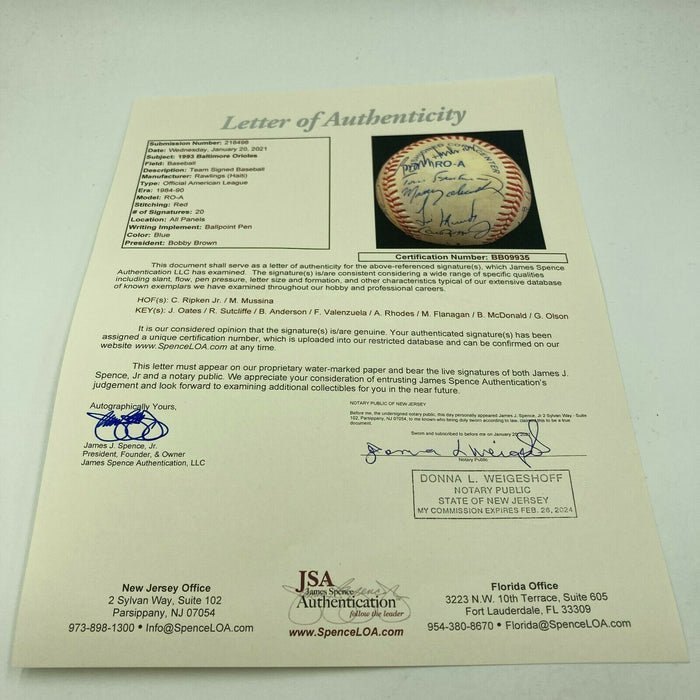 Letter of Authenticity
Submission Number: 218498
Date: Wednesday, January 20, 2021
Subject: 1993 Baltimore Orioles
Field: Baseball
Description: Team Signed Baseball
Manufacturer: Rawlings (Haiti)
Type: Official American League
Era: 1984-90
Model: RO-A
Stitching: Red
# of Signatures: 20
Location: All Panels
Writing Implement: Ballpoint Pen
Color: Blue
President: Bobby Brown
RO-A
Certification Number: BB09935
This document shall serve as a letter of authenticity for the above-referenced signature(s), which James Spence
Authentication LLC has examined. The signature(s) is/are consistent considering a wide range of specific qualities
including slant, flow, pen pressure, letter size and formation, and other characteristics typical of our extensive database
of known exemplars we have examined throughout our hobby and professional careers.
HOF(s): C. Ripken Jr. / M. Mussina
KEY(s): J. Oates / R. Sutcliffe / B. Anderson / F. Valenzuela / A. Rhodes / M. Flanagan / B. McDonald / G. Olson
It is our considered opinion that the signature(s) is/are genuine. Your authenticated signature(s) has been
assigned a unique certification number, which is uploaded into our restricted database and can be confirmed on our
website www.SpenceLOA.com at any time.
This letter must appear on our proprietary water-marked paper and bear the live signatures of both James J.
Spence, Jr and a notary public. We appreciate your consideration of entrusting James Spence Authentication's
judgement and look forward to examining additional collectibles for you in the near future.
Autographically Yours,
James J. Spence, Jr.
President, Founder, & Owner
James Spence Authentication, LLC
NOTARY PUBLIC OF NEW JERSEY
Before me, the undersigned notary public, this day personally appeared James J. Spence, Jr 2 Sylvan Way - Suite
102, Parsippany, NJ 07054, to me known who being duly sworn according to law, claimed this to be a true
document.
Sworn and subscribed to before me on January 20, 2021
Notary Public
DONNA L. WEIGESHOFF
NOTARY PUBLIC
STATE OF NEW JERSEY
MY COMMISSION EXPIRES FEB. 26, 2024
New Jersey Office
2 Sylvan Way, Suite 102
Parsippany, NJ 07054
973-898-1300 • Info@SpenceLOA.com
JSA
James Spence
Authentication
follow the leader
www.SpenceLOA.com
Florida Office
3223 N.W. 10th Terrace, Suite 605
Fort Lauderdale, FL 33309
954-380-8670 • Florida@SpenceLOA.com